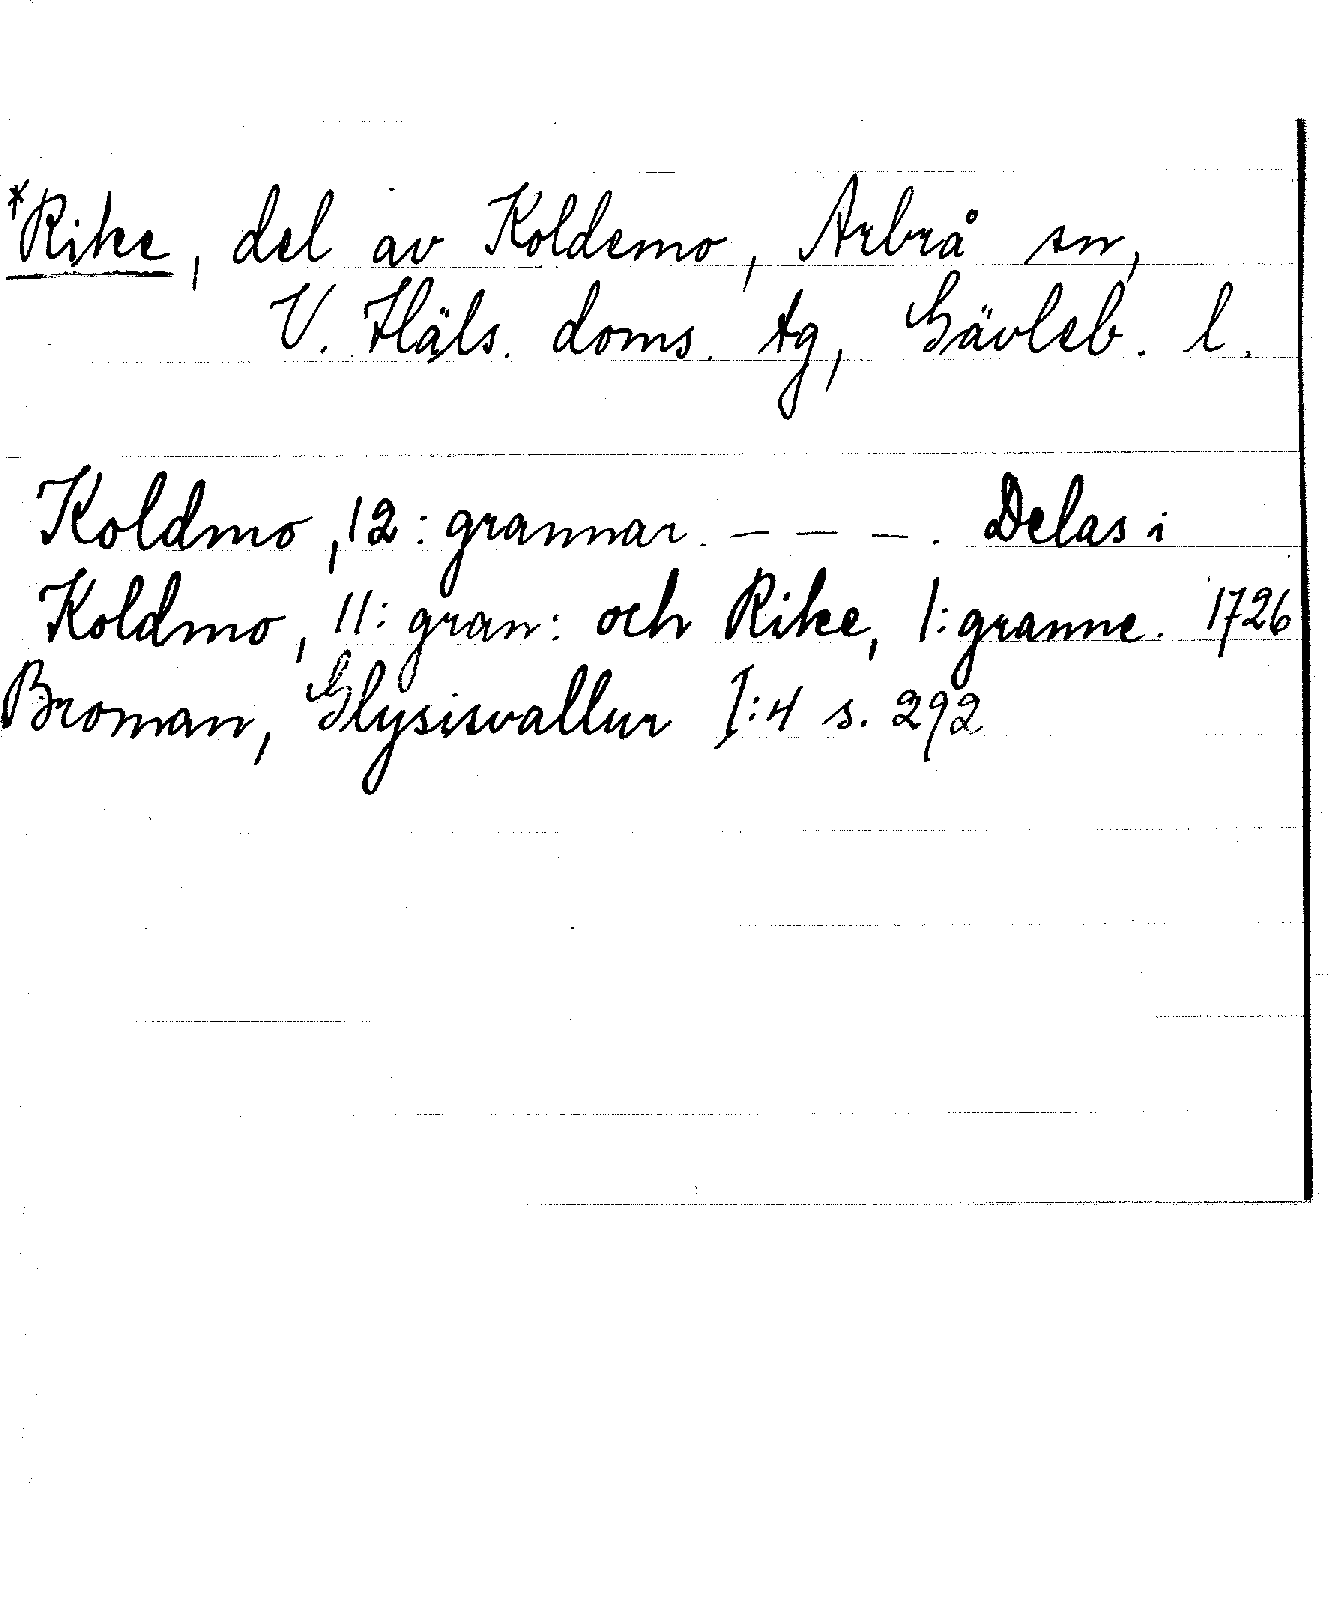 *Rike, del av Koldemo, Arbrå sn,
V. Häls. doms. tg, Gävleb. l.
Koldmo, 12: grannar. – – – . Delas i
Koldmo, 11: gran: och Rike, 1: granne. 1726
Broman, Glysisvallur I:4 s. 292